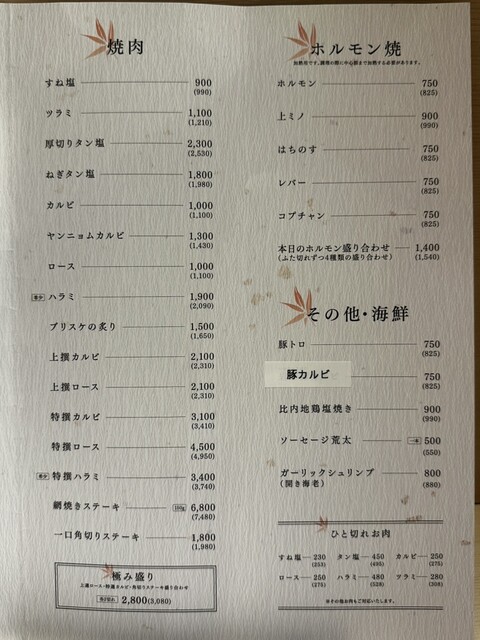 焼肉
すね塩 900
(990)
ツラミ 1,100
(1,210)
厚切りタン塩 2,300
(2,530)
ねぎタン塩 1,800
(1,980)
カルビ 1,000
(1,100)
ヤンニョムカルビ 1,300
(1,430)
ロース 1,000
(1,100)
希少 ハラミ 1,900
(2,090)
ブリスケの炙り 1,500
(1,650)
上撰カルビ 2,100
(2,310)
上撰ロース 2,100
(2,310)
特撰カルビ 3,100
(3,410)
特撰ロース 4,500
(4,950)
希少 特撰ハラミ 3,400
(3,740)
網焼きステーキ 100g 6,800
(7,480)
一口角切りステーキ 1,800
(1,980)
極み盛り
上撰ロース・特撰カルビ・角切りステーキ盛り合わせ
各2切れ 2,800(3,080)
ホルモン焼
加熱用です。調理の際に中心部まで加熱する必要があります。
ホルモン 750
(825)
上ミノ 900
(990)
はちのす 750
(825)
レバー 750
(825)
コプチャン 750
(825)
本日のホルモン盛り合わせ 1,400
(ふた切れずつ4種類の盛り合わせ) (1,540)
その他・海鮮
豚トロ 750
(825)
豚カルビ 750
(825)
比内地鶏塩焼き 900
(990)
ソーセージ荒太 一本 500
(550)
ガーリックシュリンプ 800
(開き海老) (880)
ひと切れお肉
すね塩 230 タン塩 450 カルビ 250
(253) (495) (275)
ロース 250 ハラミ 480 ツラミ 280
(275) (528) (308)
※その他お肉もご対応いたします。